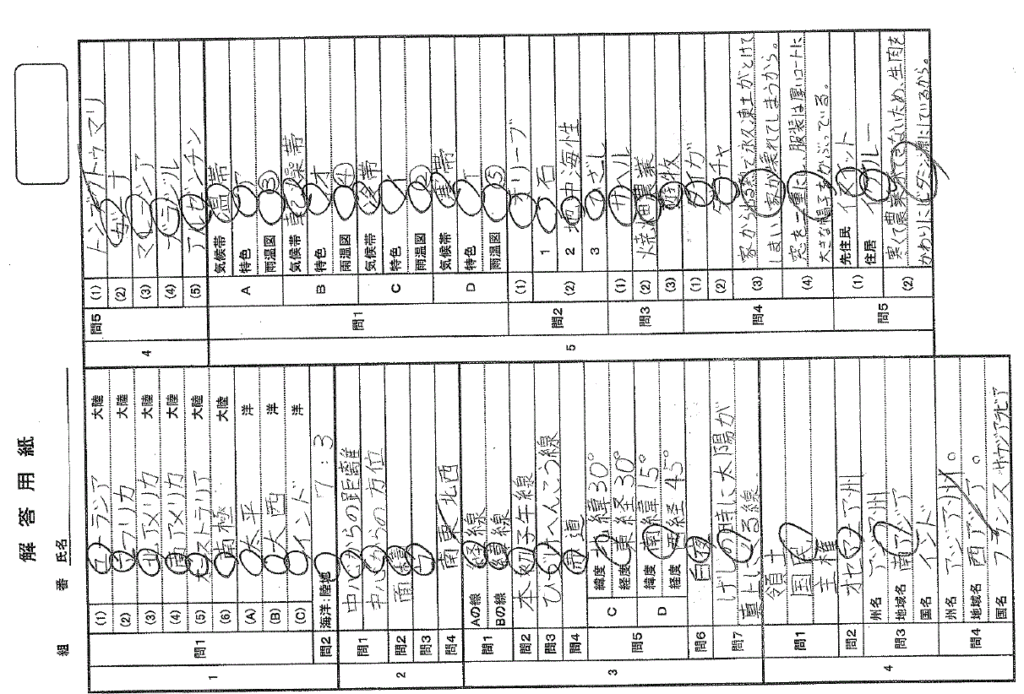 解答用紙
組 番 氏名
1
問1
(1) ユーラシア 大陸
(2) アフリカ 大陸
(3) 北アメリカ 大陸
(4) 南アメリカ 大陸
(5) オーストラリア 大陸
(6) 南極 大陸
(A) 太平 洋
(B) 大西 洋
(C) インド 洋
問2 海洋:陸地 7:3
2
問1 中心からの距離
中心からの方位
問2 面積
問3
問4 南東 北西
3
問1 Aの線 経線
Bの線 緯線
問2 本初子午線
問3 ひづけへんこう線
問4 赤道
問5
C 緯度 北緯30°
経度 東経30°
D 緯度 南緯15°
経度 西経45°
問6 白夜
問7 げしの時に太陽が
真上にくる線
4
問1 領土
国民
主権
問2 オセアニア州
問3 州名 アジア州
地域名 南アジア
国名 インド
問4 州名 アジア州。
地域名 西アジア。
国名 フランス サウジアラビア
4
問5
(1) トンブクトゥ マリ
(2) ガーナ
(3) マレーシア
(4) ブラジル
(5) アルゼンチン
5
問1
A 気候帯 温帯
特色 ア
雨温図 ③
B 気候帯 乾燥帯
特色 オ
雨温図 ④
C 気候帯 冷帯
特色 イ
雨温図 ②
D 気候帯 寒帯
特色
雨温図 ⑤
問2
(1) オリーブ
(2) 1 石
2 地中海性
3
問3
(1)
(2) 焼畑農業
(3) 遊牧
問4
(1) タイガ
(2) ダーチャ
(3) 家から出る熱で永久凍土がとけて
しまい家が壊れてしまうから。
(4) 窓を二重に、服装は厚いコートに
大きな帽子をかぶっている。
問5
(1) 先住民 イヌイット
住居 イグルー
(2) 寒くて農業ができないため、生肉を
かわりにビタミン源にしているから。